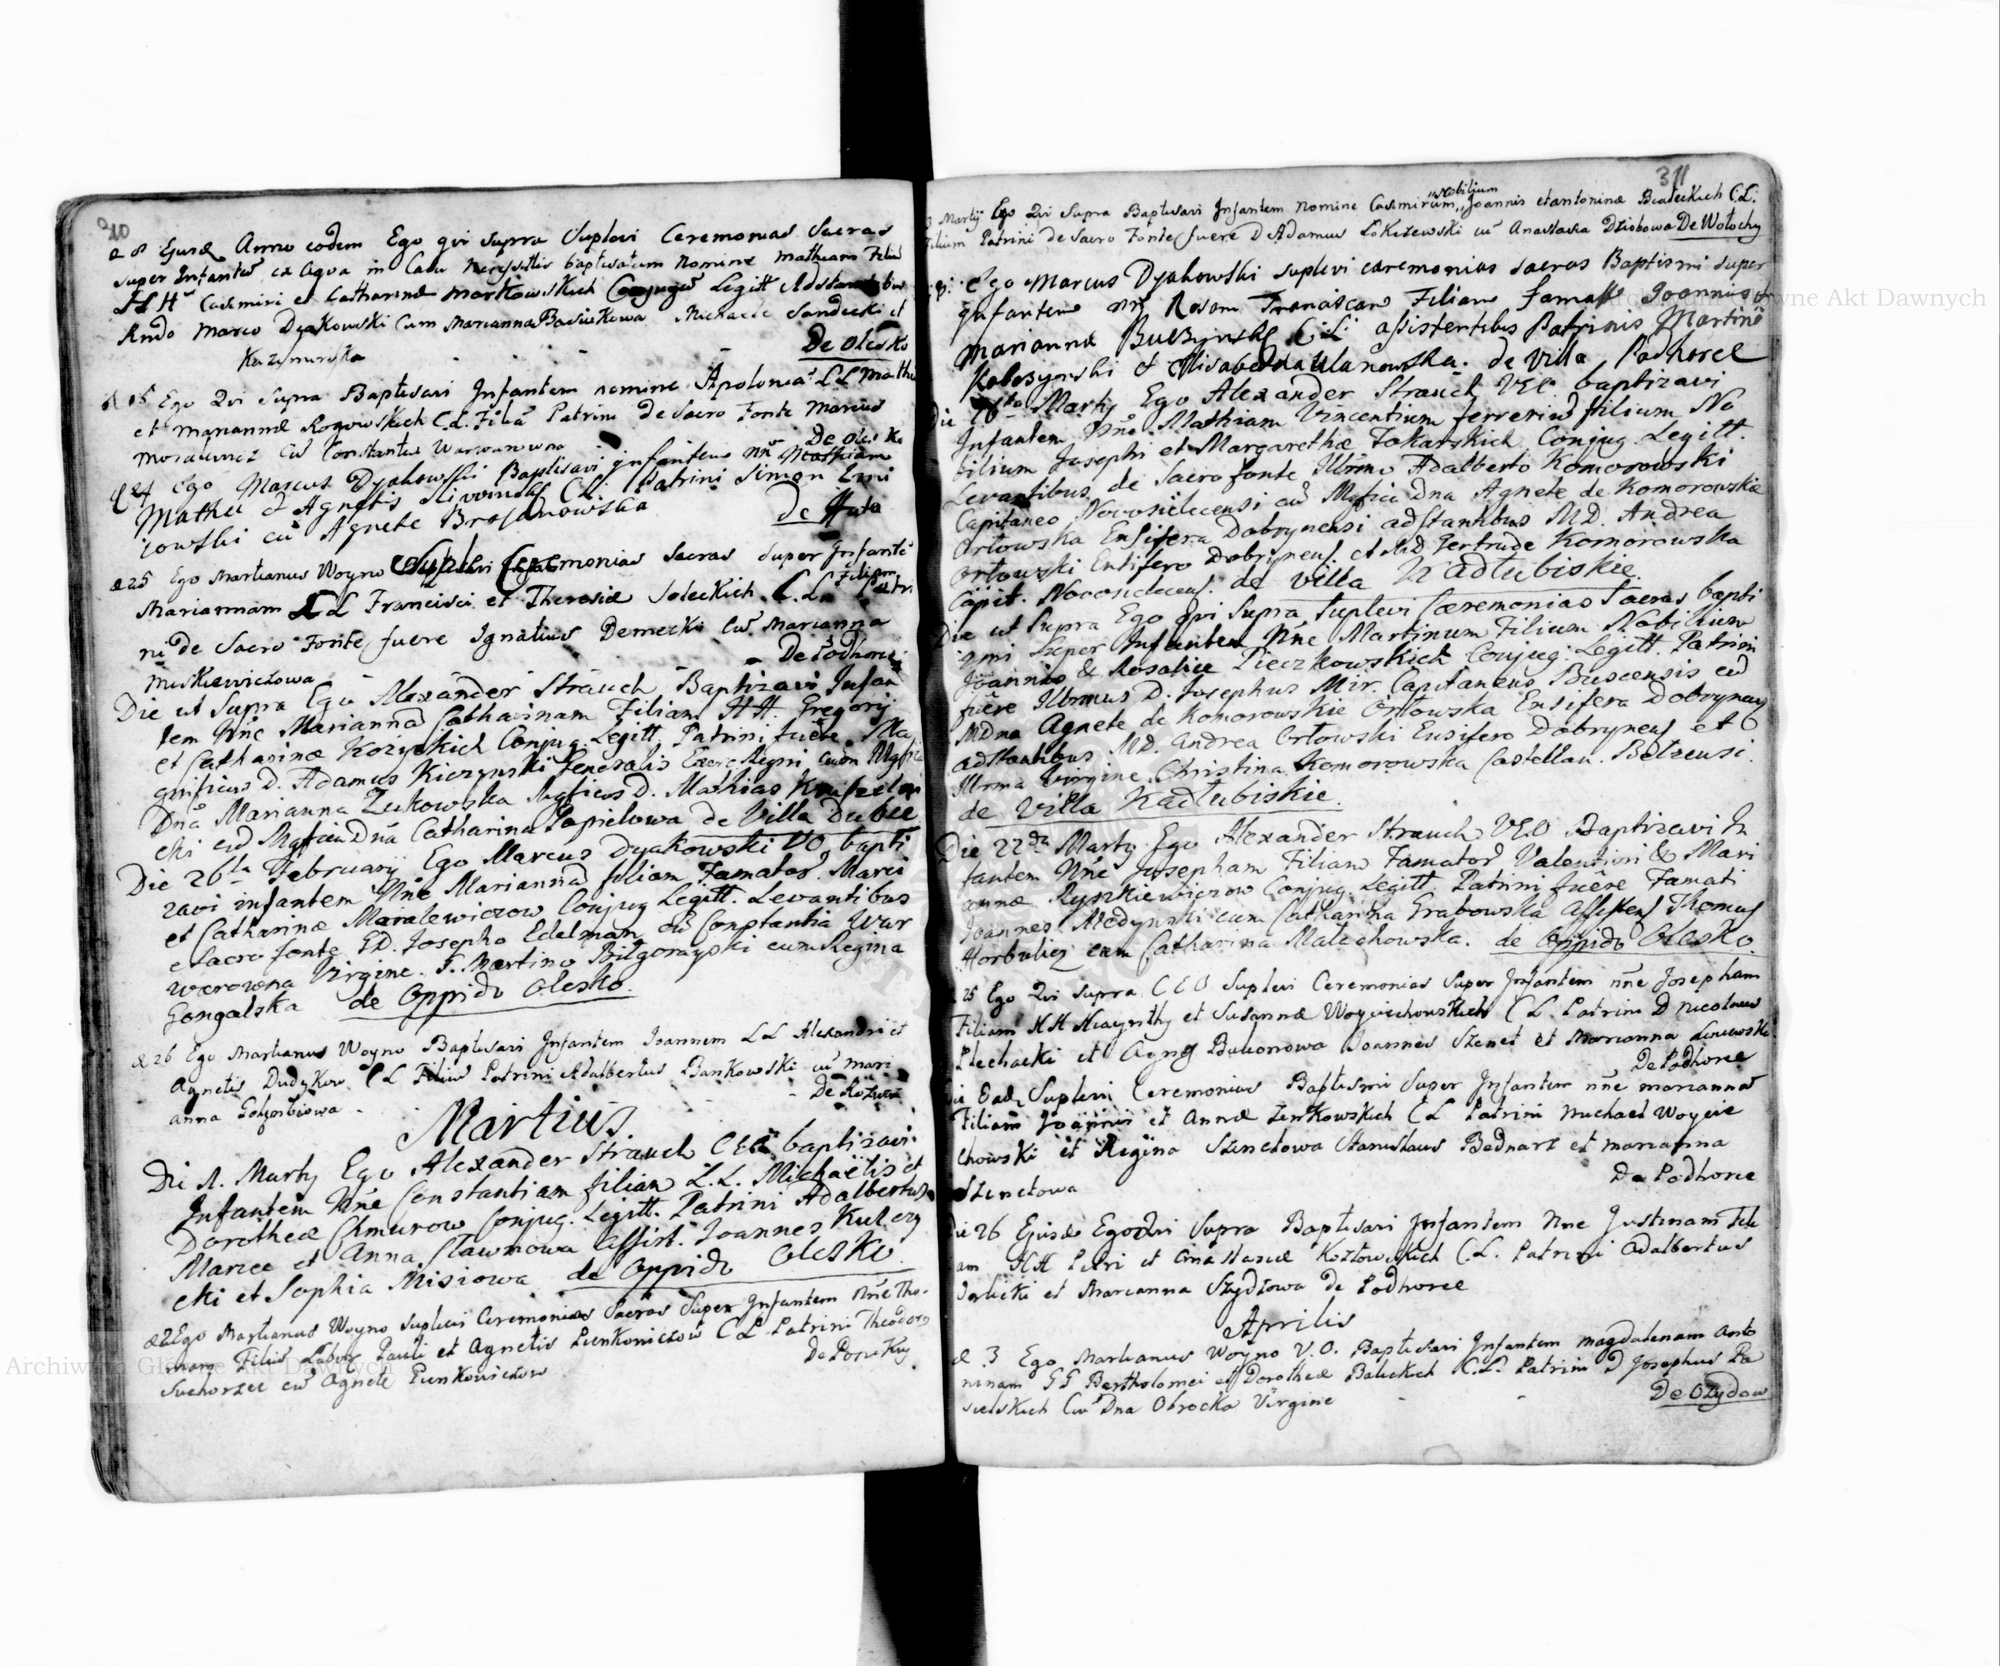 210
d 8 Ejusd Anno eodem Ego qvi supra Suplevi Ceremonias Sacras
super Infantem ex Aqva in Casu necessitatis baptisatum nomine Mathiam Filiu
HH Casimiri et Catharinæ Markowskich Conjugu Legitt Adstantibus
Rndo Marco Dyakowski Cum Marianna Basiukowa Michaele Sandecki et
Kazimirska
De Olesko
d 15 Ego Qvi Supra Baptisavi Infantem nomine Apolonia LL Mathei
et Mariannæ Rogowskich C.L. Filia Patrini De Sacro Fonte Marcus
Morawicz cu Constantia Warwarowna
De Olesko
d 24 Ego Marcus Dyakowski Baptisavi infantem nn Mathiam
Mathei et Agnetis CL: Patrini Simon
jowski cu Agnete Brojanowska
De Huta
d 25 Ego Martianus Woyno Suplevi Ceremonias Sacras Super Infante
Mariannam LL Francisci et Theresiæ Soleckich C.L. Filiam Patri
ni de Sacro Fonte fuere Ignatius Demecki Cu Marianna
Muskiewiczowa
De Podhorce
Die ut Supra Ego Alexander Strauch Baptizavi Infan
tem Nne Marianna Catharinam Filiam HH. Gregorij
et Catharinæ Kozyckich Conjug. Legitt. Patrini fuere Ma
gnificus D. Adamus Kiczynski Generalis Exerc. Regni cum Mgfica
Dna Marianna Zukowska Mgficus D. Mathias
cki cu Mgfica Dna Catharina Papielowa de Villa Dubie
Die 26ta February Ego Marcus Dyakowski VO bapti
zavi infantem Nne Marianna filiam Famator. Marci
et Catharinæ Maralewiczow Conjug Legitt. Levantibus
e Sacro fonte GD. Josepho Edelman cu Constantia War
warowna Virgine. F. Martino Bilgorayski cum Regina
Gongalska de Oppido Olesko.
d 26 Ego Martianus Woyno Baptisavi Infantem Ioannem LL Alexandri et
Agnetis Dudykow CL Filiu Patrini Adalbertus Bankowski cu Mari
anna Golgorbiowa
De
Martius
Die 1. Marty Ego Alexander Strauch baptizavi
Infantem Nne Constantiam filiam L.L. Michaëlis et
Dorotheæ Chmurow Conjug. Legitt. Patrini Adalbertus
Marzec et Anna Stawnowa Assist. Joannes
cki et Sophia Misiowa de Oppido Olesko
d 2 Ego Martianus Woyno Suplevi Ceremonias Sacras Super Infantem Nne Tho-
mam Filiu Labor Pauli et Agnetis Pienkowiczow CL Patrini Theodor
Suchorzec cu Agnete Pienkowiczow
De
311
3 Martij Ego Qvi Supra Baptisavi Infantem nomine Casimirum nobilium Joannis et Antoninæ Bialeckich C:L:
Filium Patrini de Sacro Fonte fuere D Adamus Lokiszewski cu Anastasia Dziobowa De Wolochy
Ego Marcus Dyakowski suplevi caremonias sacras Baptismi super
infantem nn Rosam Franciscam Filiam famatt Joannis et
Mariannæ C:L: assistentibus Patrinis Martino
et Elisabetha Ulanowska. de Villa Podhorce
Die 16ta Marty Ego Alexander Strauch VCC baptizavi
Infantem Nne Mathiam Vincentium ferreriu filium No
bilium Josephi et Margarethæ Tokarskich Conjug. Legitt.
Levantibus de Sacro fonte Illrmo Adalberto Komorowski
Capitaneo Novosielecensi cu Mgfica Dna Agnete de Komorowskie
Orlowska Ensifera Dobrynensi adstantibus MD. Andrea
Orlowski Ensifero Dobrynens. et MD Gertrude Komorowska
Capit. Novosielecens. de Villa Kadlubiskie
Die ut Supra Ego qvi Supra Suplevi Cæremonias Sacras bapti
zmi Super Infantem Nne Martinum Filium Nobilium
Joannis & Rosaliæ Pieczkowskich Conjug: Legitt. Patrini
fuere Illrmus D. Josephus Mir. Capitaneus Buscensis cu
MDna Agnete de Komorowskie Orlowska Ensifera Dobrynens
adstantibus MD. Andrea Orlowski Ensifero Dobrynens et
Illrma Virgine Christina Komorowska Castellan. Belzensi.
de Villa Kadlubiskie.
Die 22da Marty Ego Alexander Strauch Baptizavi In
fantem Nne Josepham Filiam Famator Valentini & Mari
annæ Ryszkiewiczow Conjug. Legitt. Patrini fuere Famati
Joannes Medynski cum Catharina Grabowska Assistens Thomas
Horbulicz cum Catharina Malechowska. de Oppido Olesko.
25 Ego Qvi Supra Suplevi Ceremonias Super Infantem nne Josepham
Filiam HH Hiacynthy et Susannæ Woyciechowskich CL Patrini D Nicolaus
Plechacki et Agnes Joannes Szenet et Marianna
De Podhorce
Die Ead. Suplevi Ceremonias Baptismi Super Infantem nne Marianna
Filiam Joannis et Annæ Zenkowskich CL Patrini Michael Woycie
chowski et Regina Szenetowa Stanislaus Bednarz et Marianna
Szenetowa
De Podhorce
Die 26 Ejusd Ego Qvi Supra Baptisavi Infantem Nne Justinam Fili
am HH Petri et Anastasiæ Kozlowskich CL. Patrini Adalbertus
et Marianna Szydlowa de Podhorce
Aprilis
d 3 Ego Martianus Woyno V.O. Baptisavi Infantem Magdalenam Anto
ninam GG Bartholomei et Dorotheæ Balickich C.L. Patrini D Josephus Pa
sielskich Cu Dna Obrocka Virgine
De Ozydow
Archiwum Główne Akt Dawnych
Archiwum Główne Akt Dawnych